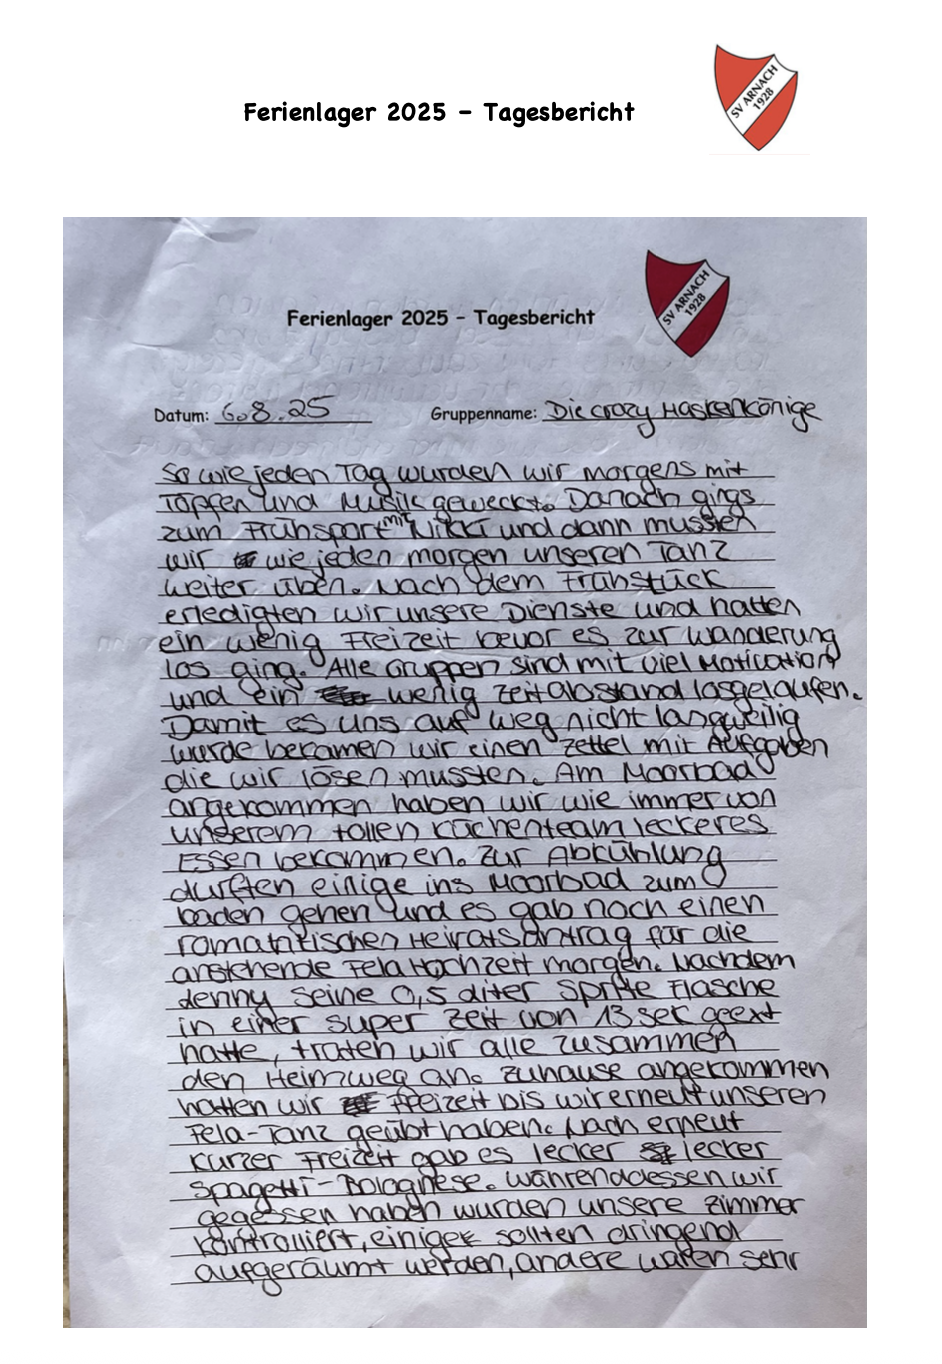 Ferienlager 2025 – Tagesbericht
SV ARNACH
1928
SV ARNACH
1928
Ferienlager 2025 – Tagesbericht
Datum: 6.8.25 Gruppenname: Die crazy Maskenkönige
So wie jeden Tag wurden wir morgens mit
Töpfen und Musik geweckt. Danach gings
zum Frühsport mit Nikki und dann mussten
wir wie jeden morgen unseren Tanz
weiter üben. Nach dem Frühstück
erledigten wir unsere Dienste und hatten
ein wenig Freizeit bevor es zur Wanderung
los ging. Alle Gruppen sind mit viel Motivation
und ein wenig Zeitabstand losgelaufen.
Damit es uns auf weg nicht langweilig
wurde bekamen wir einen Zettel mit Aufgaben
die wir lösen mussten. Am Moorbad
angekommen haben wir wie immer von
unserem tollen Küchenteam leckeres
Essen bekommen. Zur Abkühlung
durften einige ins Moorbad zum
baden gehen und es gab noch einen
romantischen Heiratsantrag für die
anstehende Fela Hochzeit morgen. Nachdem
denny seine 0,5 liter Sprite Flasche
in einer super Zeit von 13 sek geext
hatte, traten wir alle zusammen
den Heimweg an. Zuhause angekommen
hatten wir Freizeit bis wir erneut unseren
Fela-Tanz geübt haben. Nach erneut
kurzer Freizeit gab es lecker lecker
Spagetti-Bolognese. Wärenddessen wir
gegessen haben wurden unsere Zimmer
kontrolliert, einige sollten dringend
aufgeräumt werden, andere waren sehr